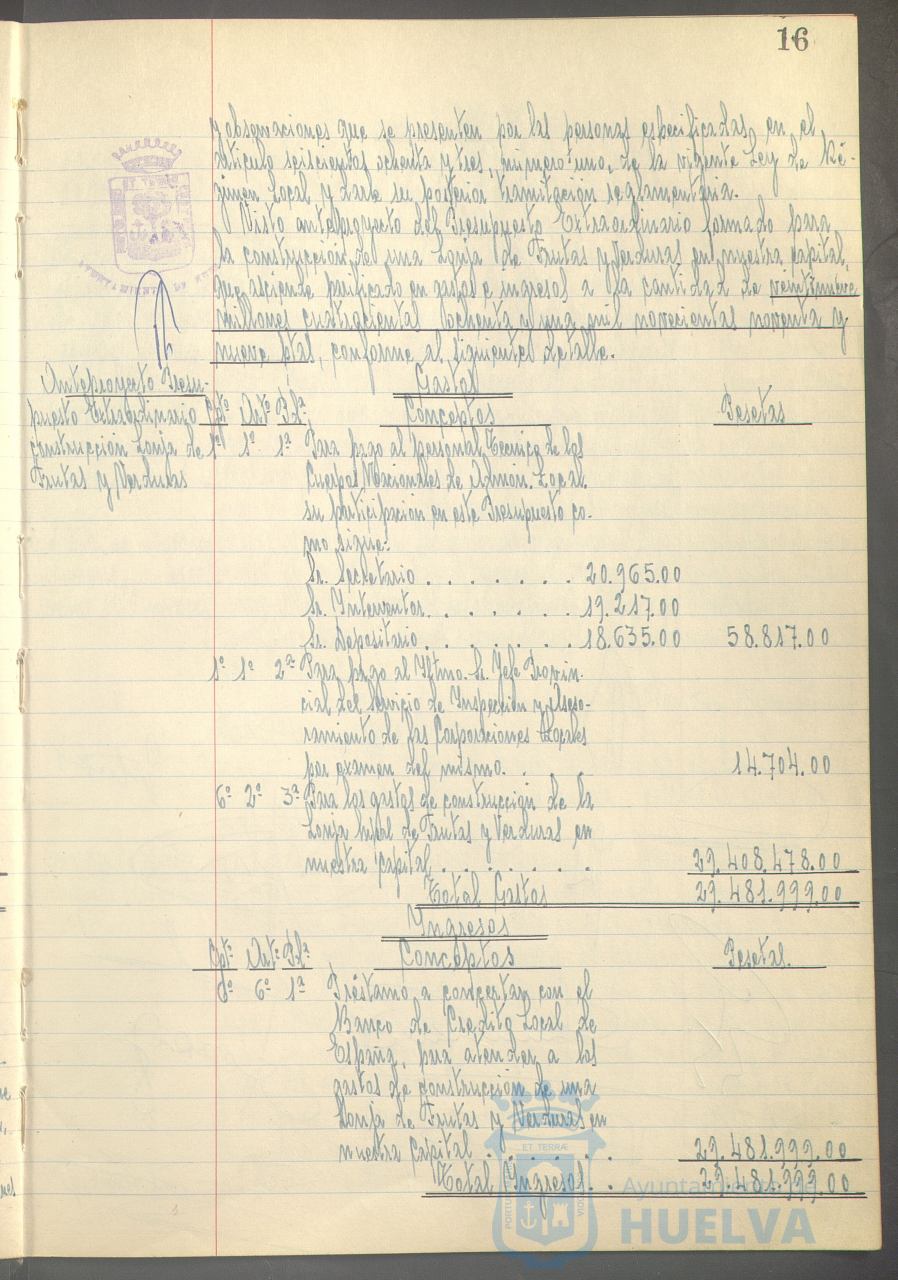 16
y observaciones que se presenten por las personas especificadas en el
artículo seiscientos ochenta y tres, número uno, de la vigente Ley de Ré-
gimen Local y darle su posterior tramitación reglamentaria.
Visto anteproyecto del Presupuesto Extraordinario formado para
la construcción de una Lonja de Frutas y Verduras en nuestra capital,
que asciende purificado en gastos e ingresos a la cantidad de veintinueve
millones cuatrocientas ochenta y una mil novecientas noventa y
nueve ptas, conforme al siguiente detalle.
Anteproyecto Presu-
puesto Extraordinario
construcción Lonja de
Frutas y Verduras
Gastos
Cptº Artº Pdª Conceptos Pesetas
1º 1º 1ª Para pago al personal Técnico de los
Cuerpos Nacionales de Admón. Local
su participación en este Presupuesto co-
mo sigue:
Sr. Secretario . . . . . . . 20.965.00
Sr. Interventor . . . . . . 19.217.00
Sr. Depositario . . . . . . . 18.635.00 58.817.00
1º 1º 2ª Para pago al Iltmo. Sr. Jefe Provin-
cial del Servicio de Inspección y Aseso-
ramiento de las Corporaciones Locales
por examen del mismo. . 14.704.00
6º 2º 3ª Para los gastos de construcción de la
Lonja mpal de Frutas y Verduras en
nuestra capital . . . . . . . 29.408.478.00
Total Gastos 29.481.999.00
Ingresos
Cptº Artº Pdª Conceptos Pesetas.
6º 1ª Préstamo a concertar con el
Banco de Crédito Local de
España, para atender a los
gastos de construcción de una
Lonja de Frutas y Verduras en
nuestra capital . . . . . . 29.481.999.00
Total Ingresos . . 29.481.999.00
ET TERRÆ
Ayuntamiento de
HUELVA